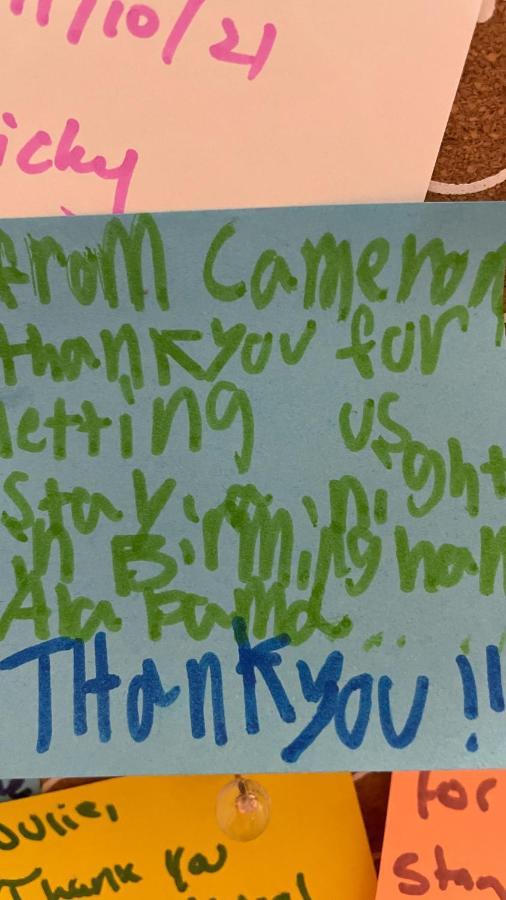 11/10/21
icky
from Cameron
thankyou for
letting us
stay a night
in Birmingham
Alabama
THankyou!!
Julie,
Thank you
for
Stay